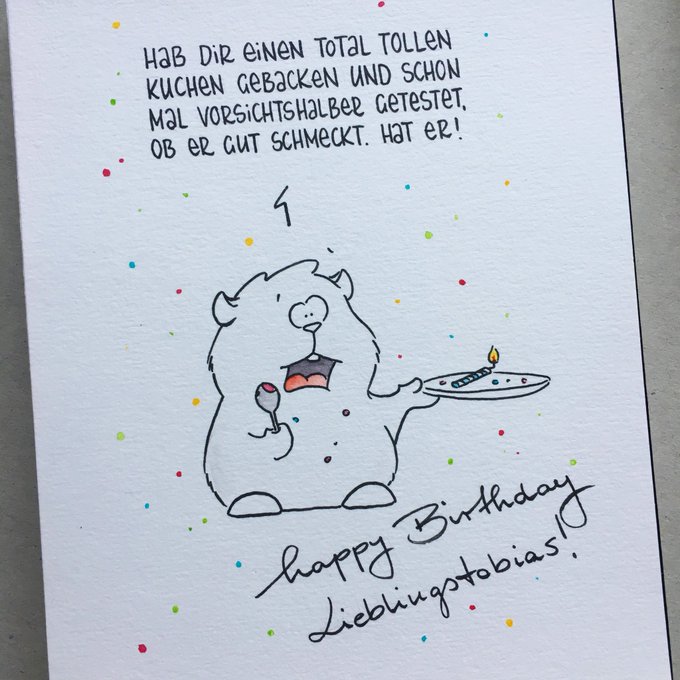 HAB DIR EINEN TOTAL TOLLEN
KUCHEN GEBACKEN UND SCHON
MAL VORSICHTSHALBER GETESTET,
OB ER GUT SCHMECKT. HAT ER!
happy Birthday
Lieblingstobias!